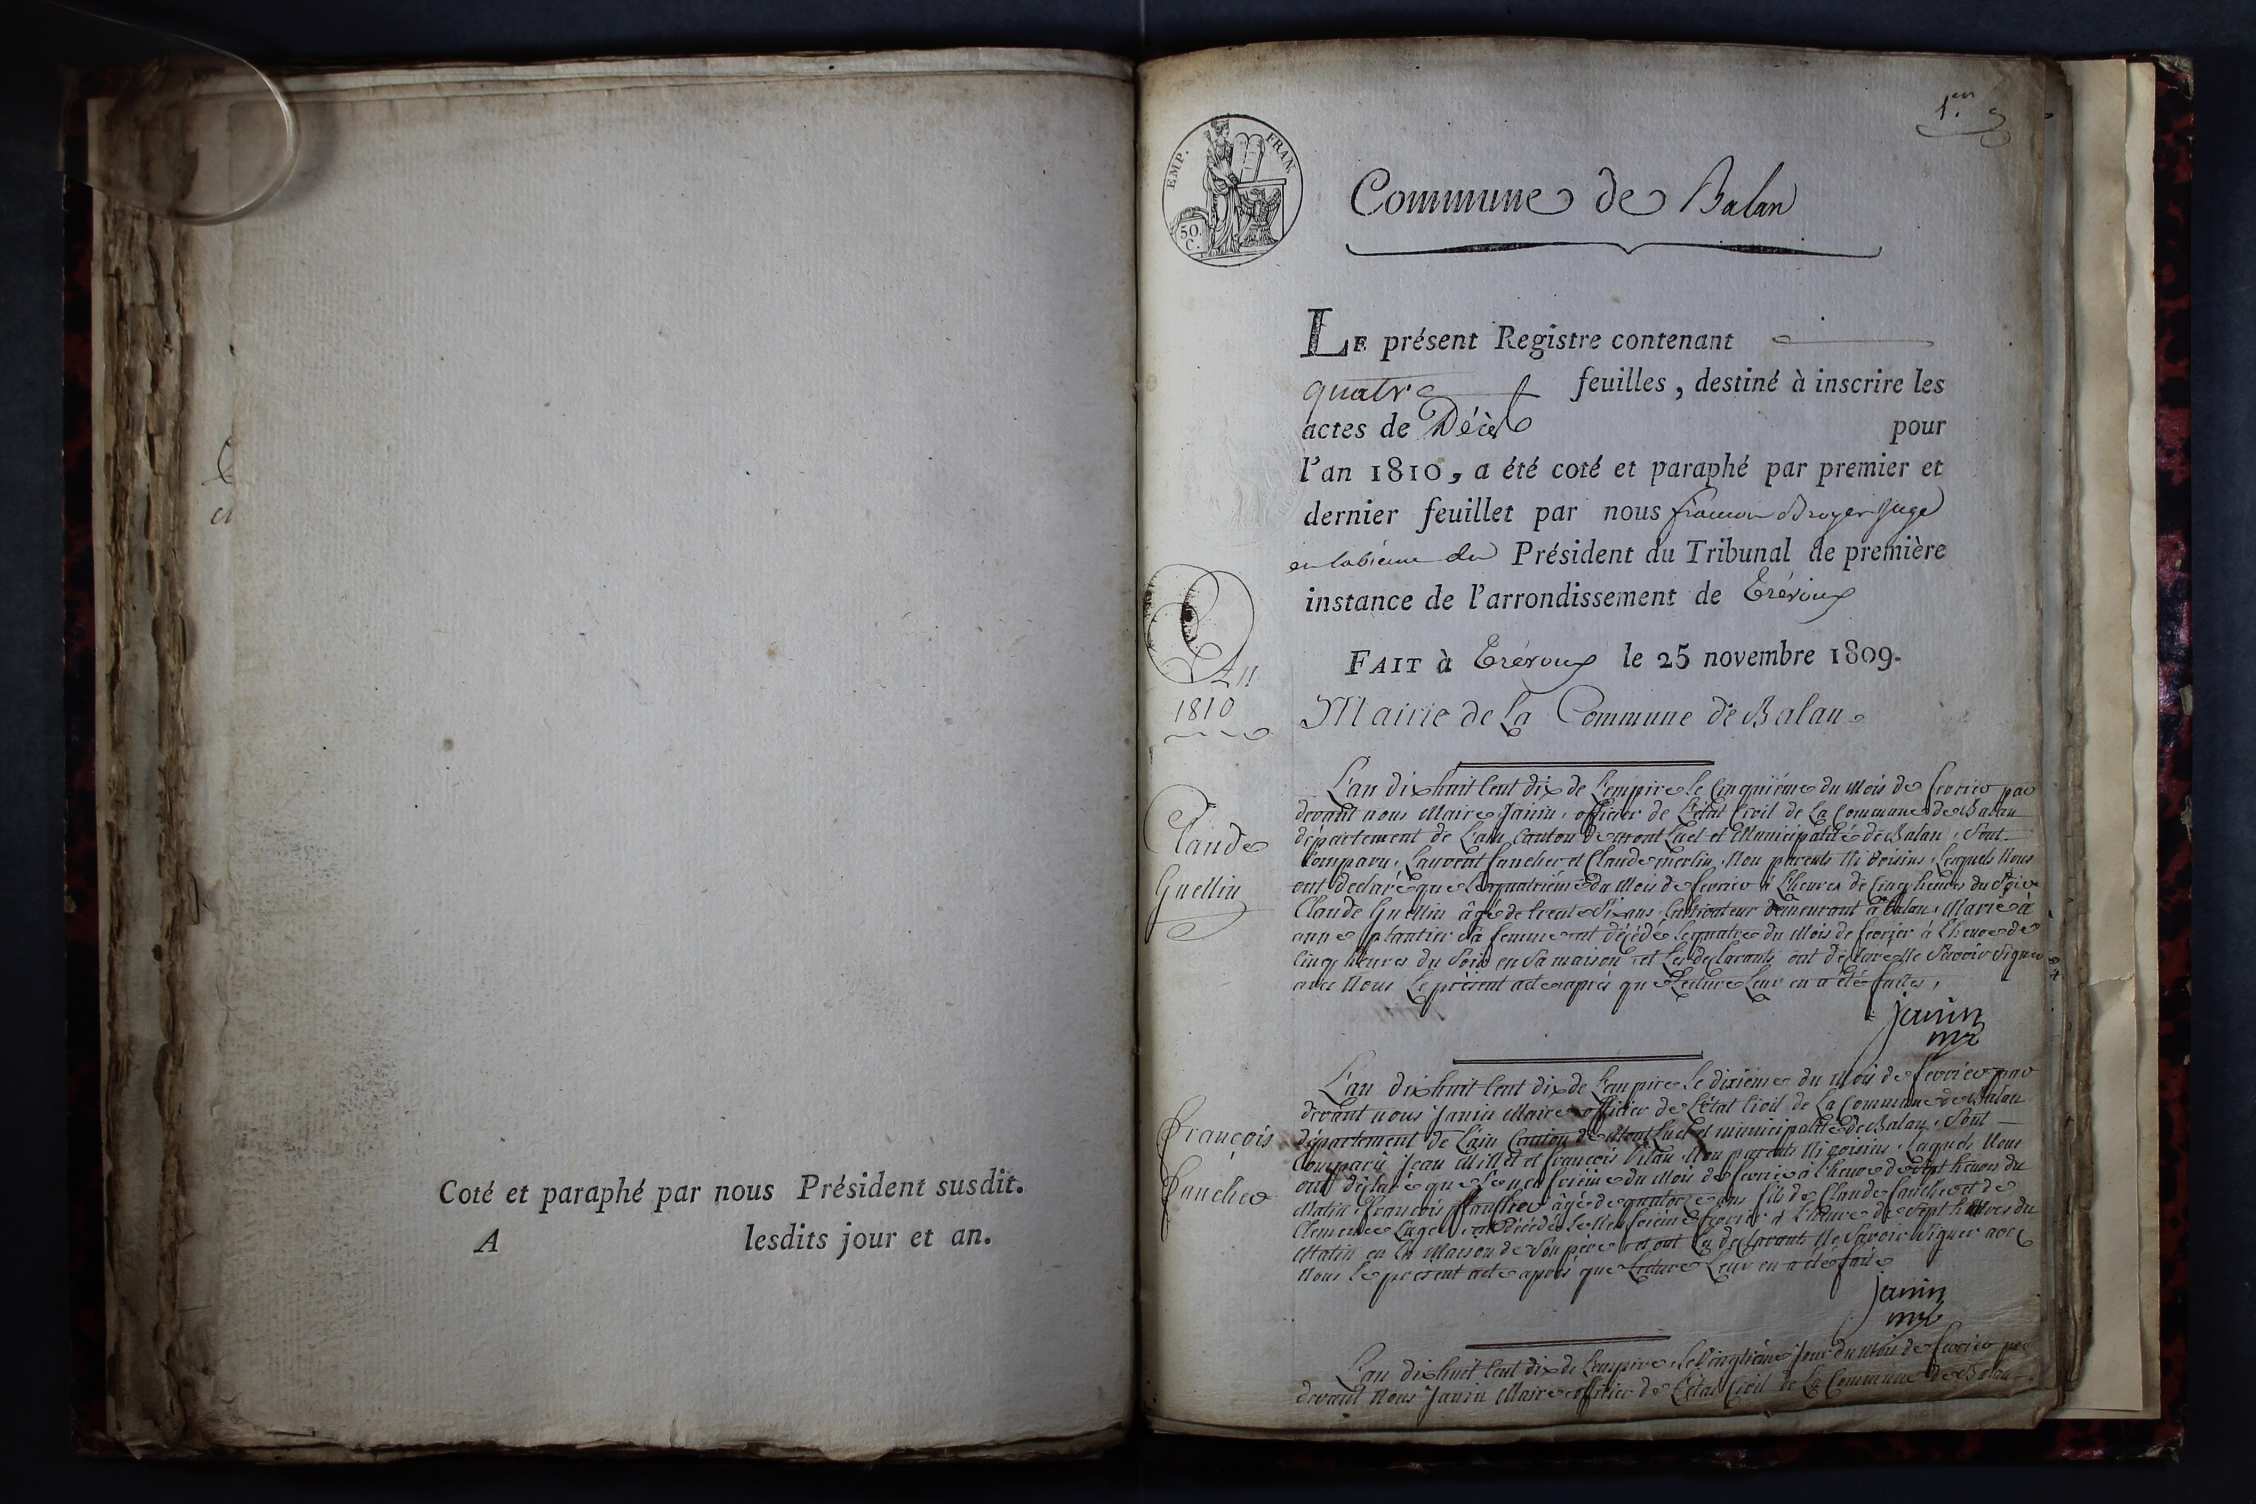 Coté et paraphé par nous Président susdit.
A lesdits jour et an.
1.er
EMP. FRAN.
50.
C.
Commune de Balan
LE présent Registre contenant
quatre feuilles, destiné à inscrire les
actes de Décès pour
l'an 1810, a été coté et paraphé par premier et
dernier feuillet par nous Broyer Juge
Président du Tribunal de première
instance de l'arrondissement de Trévoux
FAIT à Trévoux le 25 novembre 1809.
An
1810
Mairie de La Commune de Balan
L'an dix huit Cent dix de L'empire Le Cinquième du Mois de fevrier par
devant nous Maire Janin, officier de L'état Civil de La Commune de Balan
département de L'ain Canton de Mont Luel et Municipalité de Balan, Sont
Comparu, Laurent faucher et Claude merlin, Non parents Ni Voisins, Lesquels Nous
ont declaré que Le quatrième du Mois de fevrier à L'heure de Cinq heures du Soir
Claude Guellin âgé de trente Six ans Cultivateur demeurant à Balan, Marié à
anne plantier sa femme est décédé Le quatre du Mois de fevrier à L'heure de
Cinq heures du Soir en Sa maison, et Les declarants ont declaré Ne Savoir Signer
avec Nous Le présent acte après que Lecture Leur en a été faite,
janin
mre
Claude
Guellin
L'an dix huit Cent dix de L'empire Le dixième du Mois de fevrier par
devant nous Janin Maire officier de L'état Civil de La Commune de Balan
département de L'ain Canton de Mont Luel et municipalité de Balan, Sont
Comparû Jean Millet et françois Non parents Ni Voisins, Lesquels Nous
ont déclaré que du Mois de fevrier à L'heure de Sept heures du
Matin françois faucher âgé de quatorze ans fils de Claude faucher et de
Clemence est Décédé Le fevrier à L'heure de Sept heures du
Matin en La Maison de Son père, et ont Les declarants Ne Savoir Signer avec
Nous Le present acte après que Lecture Leur en a été faite
janin
mre
François
Faucher
L'an dix huit Cent dix de L'empire, Le Vingtième Jour du Mois de fevrier par
devant Nous Janin Maire officier de L'état Civil de La Commune de Balan